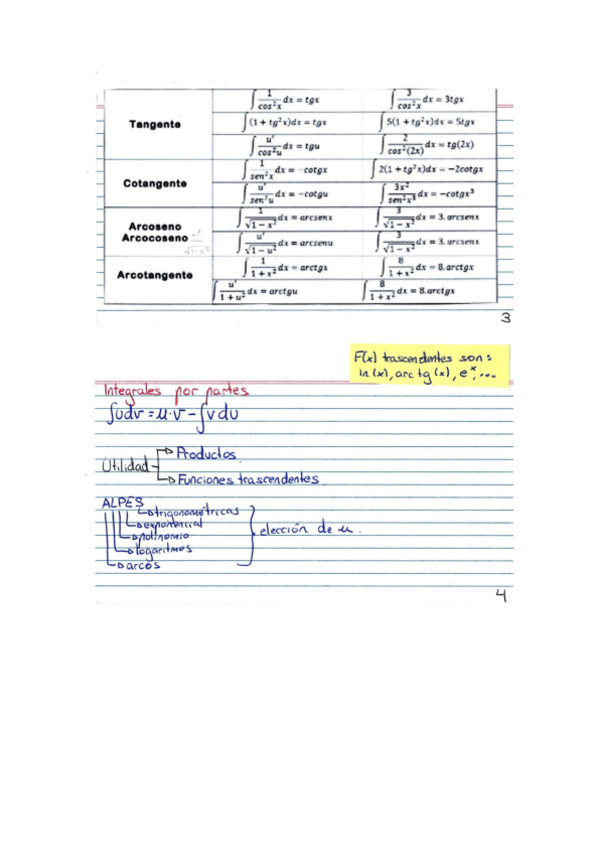 Tangente
∫ 1/cos²x dx = tgx    ∫ 3/cos²x dx = 3tgx
∫(1 + tg²x)dx = tgx    ∫5(1 + tg²x)dx = 5tgx
∫ u'/cos²u dx = tgu    ∫ 2/cos²(2x) dx = tg(2x)
Cotangente
∫ 1/sen²x dx = -cotgx    ∫2(1 + tg²x)dx = -2cotgx
∫ u'/sen²u dx = -cotgu    ∫ 3x²/sen²x³ dx = -cotgx³
Arcoseno
Arcocoseno
∫ 1/√1-x² dx = arcsenx    ∫ 3/√1-x² dx = 3.arcsenx
∫ u'/√1-u² dx = arcsenu    ∫ 3/√1-x² dx = 3.arcsenx
Arcotangente
∫ 1/1+x² dx = arctgx    ∫ 8/1+x² dx = 8.arctgx
∫ u'/1+u² dx = arctgu    ∫ 8/1+x² dx = 8.arctgx
3
F(x) trascendentes son:
ln(x), arc tg(x), eˣ, ...
Integrales por partes
∫udv = u·v - ∫vdu
Utilidad
Productos
Funciones trascendentes
ALPES
trigonométricas
exponencial
polinomio
logaritmos
arcos
elección de u.
4